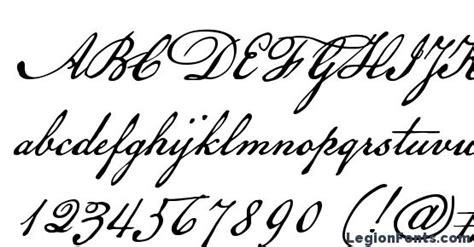 ABCDEFGHIJK
abcdefghijklmnopqrstuvwx
1234567890 (!@#
LegionFonts.com